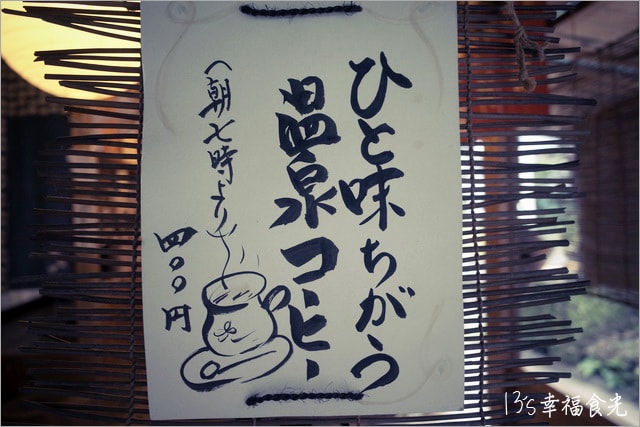 ひと味ちがう
温泉コーヒー
(朝七時より)
四〇〇円
13's幸福食光